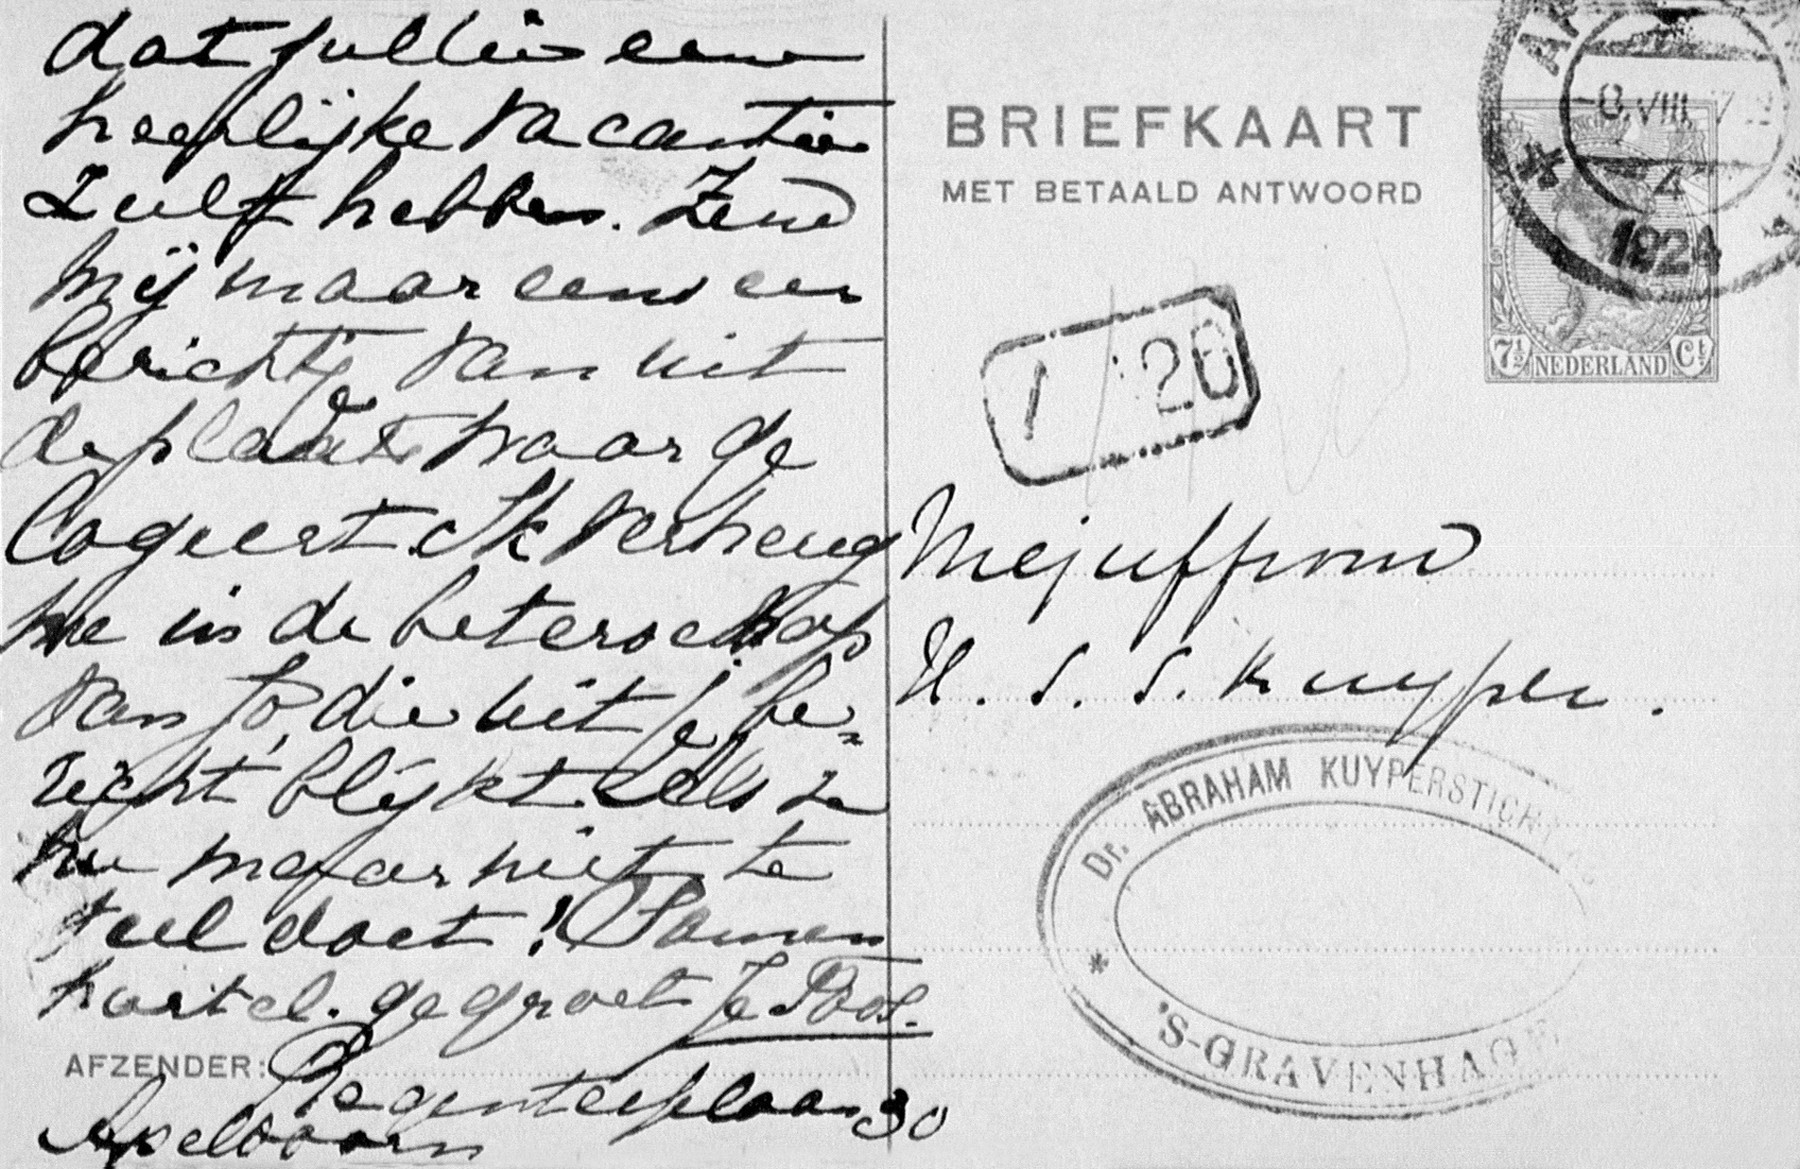 dat jullie een
heerlijke vacantie
zult hebben. Zend
mij maar eens een
berichtje van uit
de plaats waar ge
logeert. Ik verheug
me in de beterschap
van Jo, die uit je be-
richt blijkt. Als ze
nu maar niet te
veel doet! Samen
hartel. gegroet Je Toos.
AFZENDER: Regentesselaan 30
Apeldoorn
BRIEFKAART
MET BETAALD ANTWOORD
8.VIII.
4
1924
7½ NEDERLAND Ct
1 26
Mejuffrouw
H. S. S. Kuyper.
Dr. ABRAHAM KUYPERSTICHTING
* 'S-GRAVENHAGE